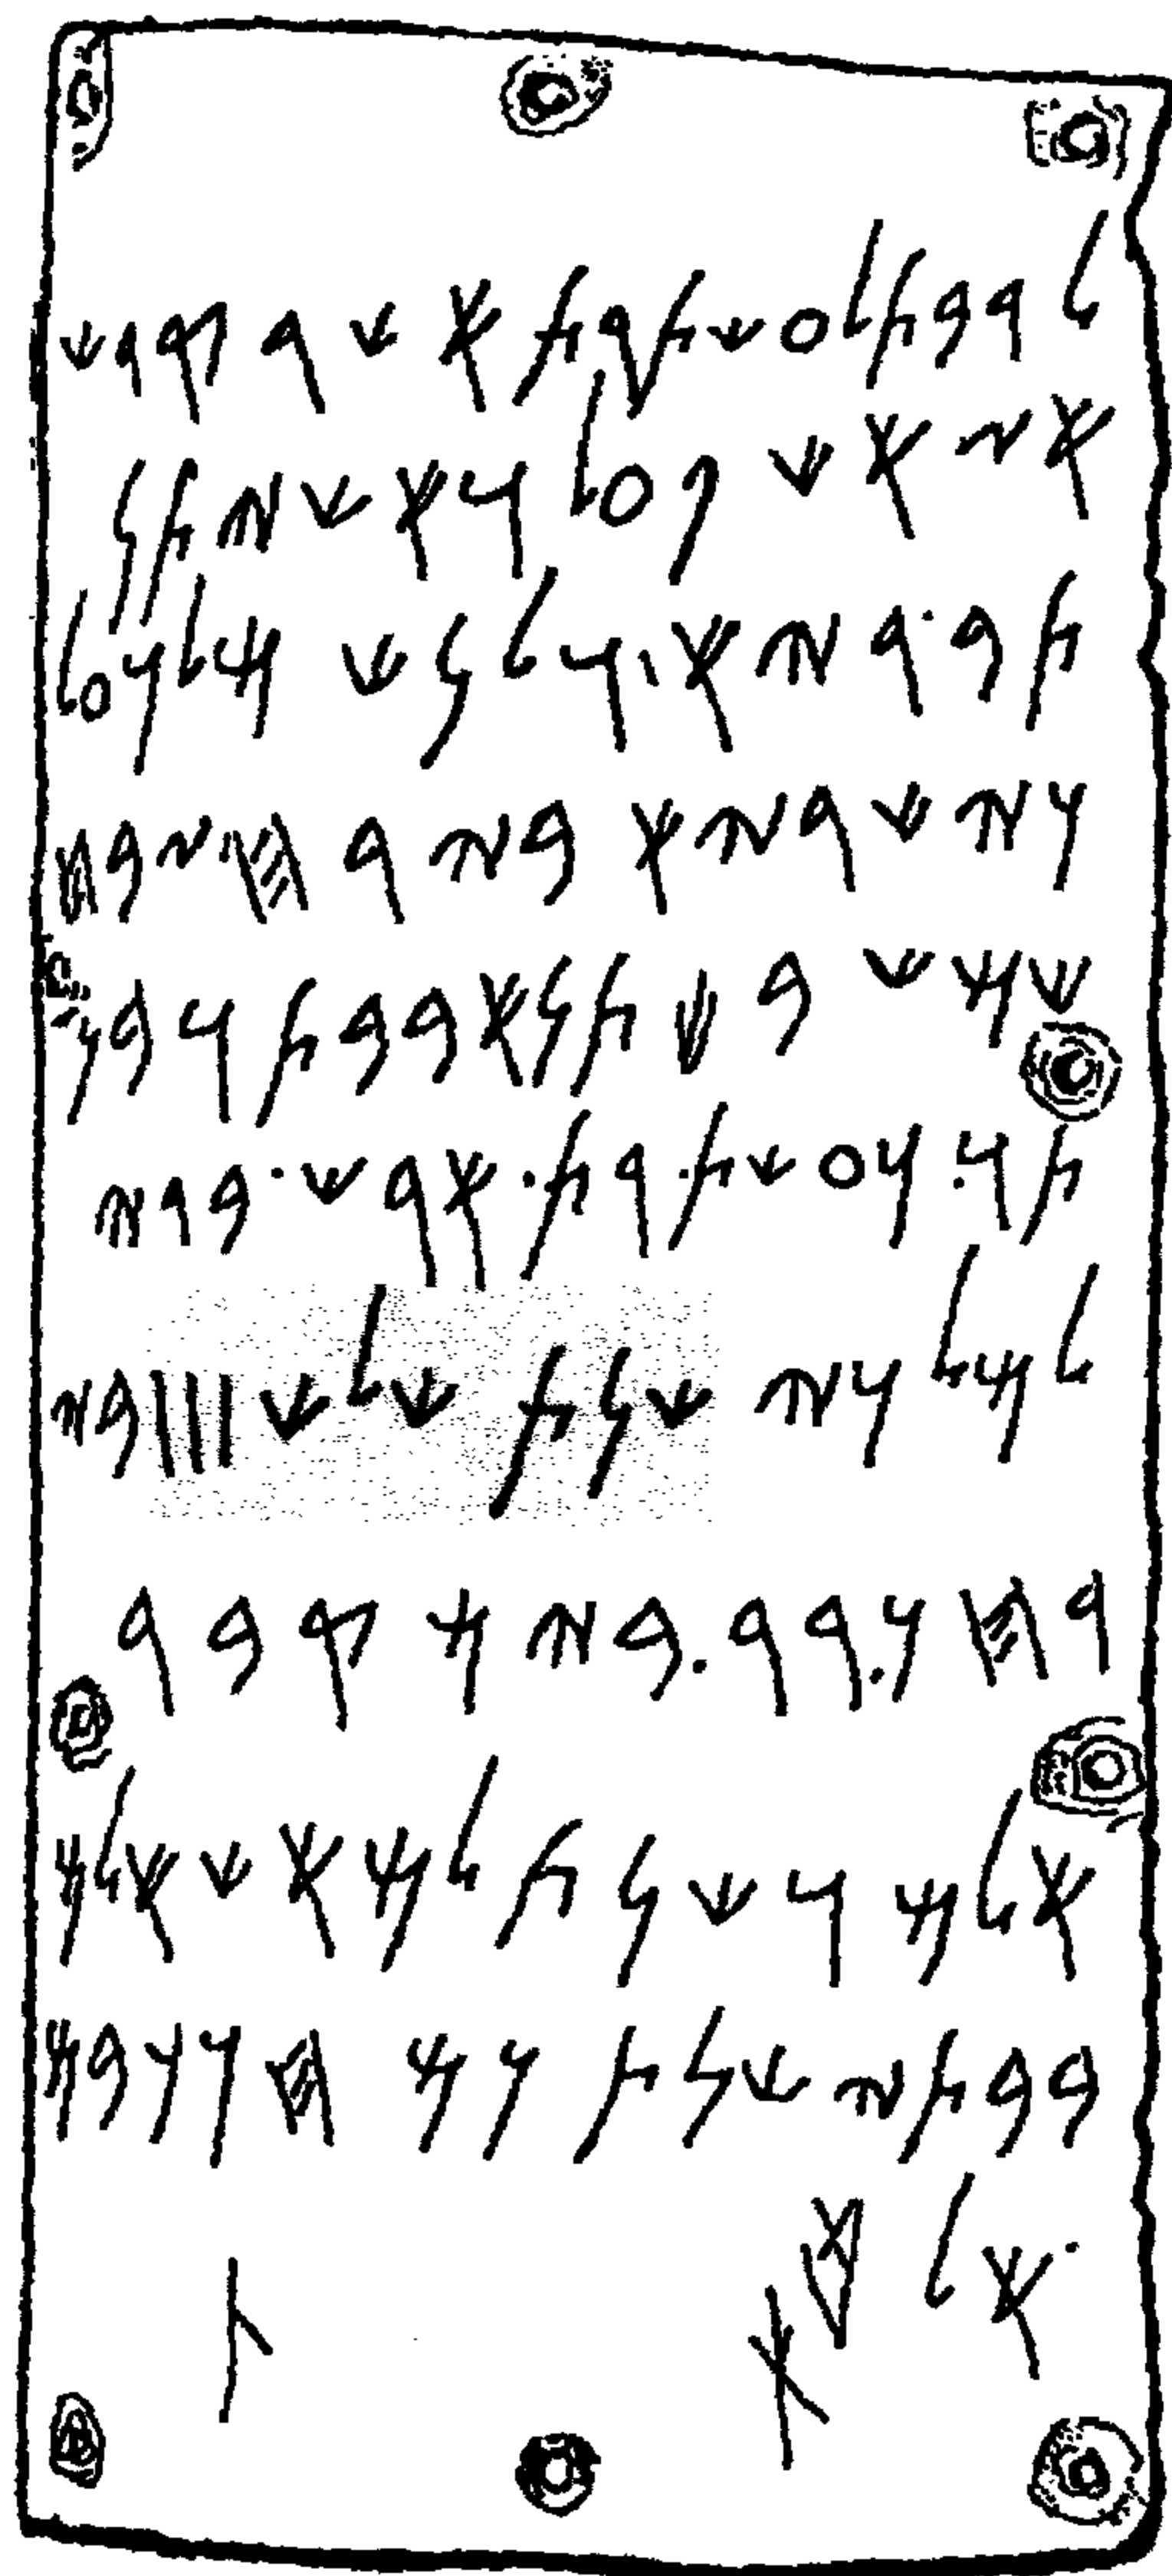 𐤋𐤓𐤁𐤕𐤋𐤏𐤔𐤕𐤓𐤕𐤀𐤔𐤓𐤒𐤃𐤔
𐤀𐤆𐤀𐤔𐤐𐤏𐤋𐤅𐤀𐤔𐤉𐤕𐤍
𐤕𐤁𐤟𐤓𐤉𐤀𐤟𐤅𐤋𐤍𐤔𐤌𐤋𐤊𐤏𐤋
𐤊𐤉𐤔𐤓𐤉𐤀𐤁𐤉𐤓𐤇𐤟𐤆𐤁𐤇
𐤔𐤌𐤔𐤁𐤌𐤕𐤍𐤀𐤁𐤁𐤕𐤅𐤁𐤍
𐤕𐤅𐤟𐤊𐤏𐤔𐤕𐤟𐤓𐤕𐤟𐤀𐤓𐤔𐤟𐤁𐤃𐤉
𐤋𐤌𐤋𐤊𐤉𐤔𐤍𐤕𐤔𐤋𐤔𐤖𐤖𐤖𐤁𐤉
𐤓𐤇𐤊𐤟𐤓𐤓𐤟𐤁𐤉𐤌𐤒𐤁𐤓
𐤀𐤋𐤌𐤅𐤔𐤍𐤕𐤋𐤌𐤀𐤔𐤀𐤋𐤌
𐤁𐤁𐤕𐤉𐤔𐤍𐤕𐤊𐤌𐤄𐤊𐤊𐤁𐤌
𐤟𐤀𐤋